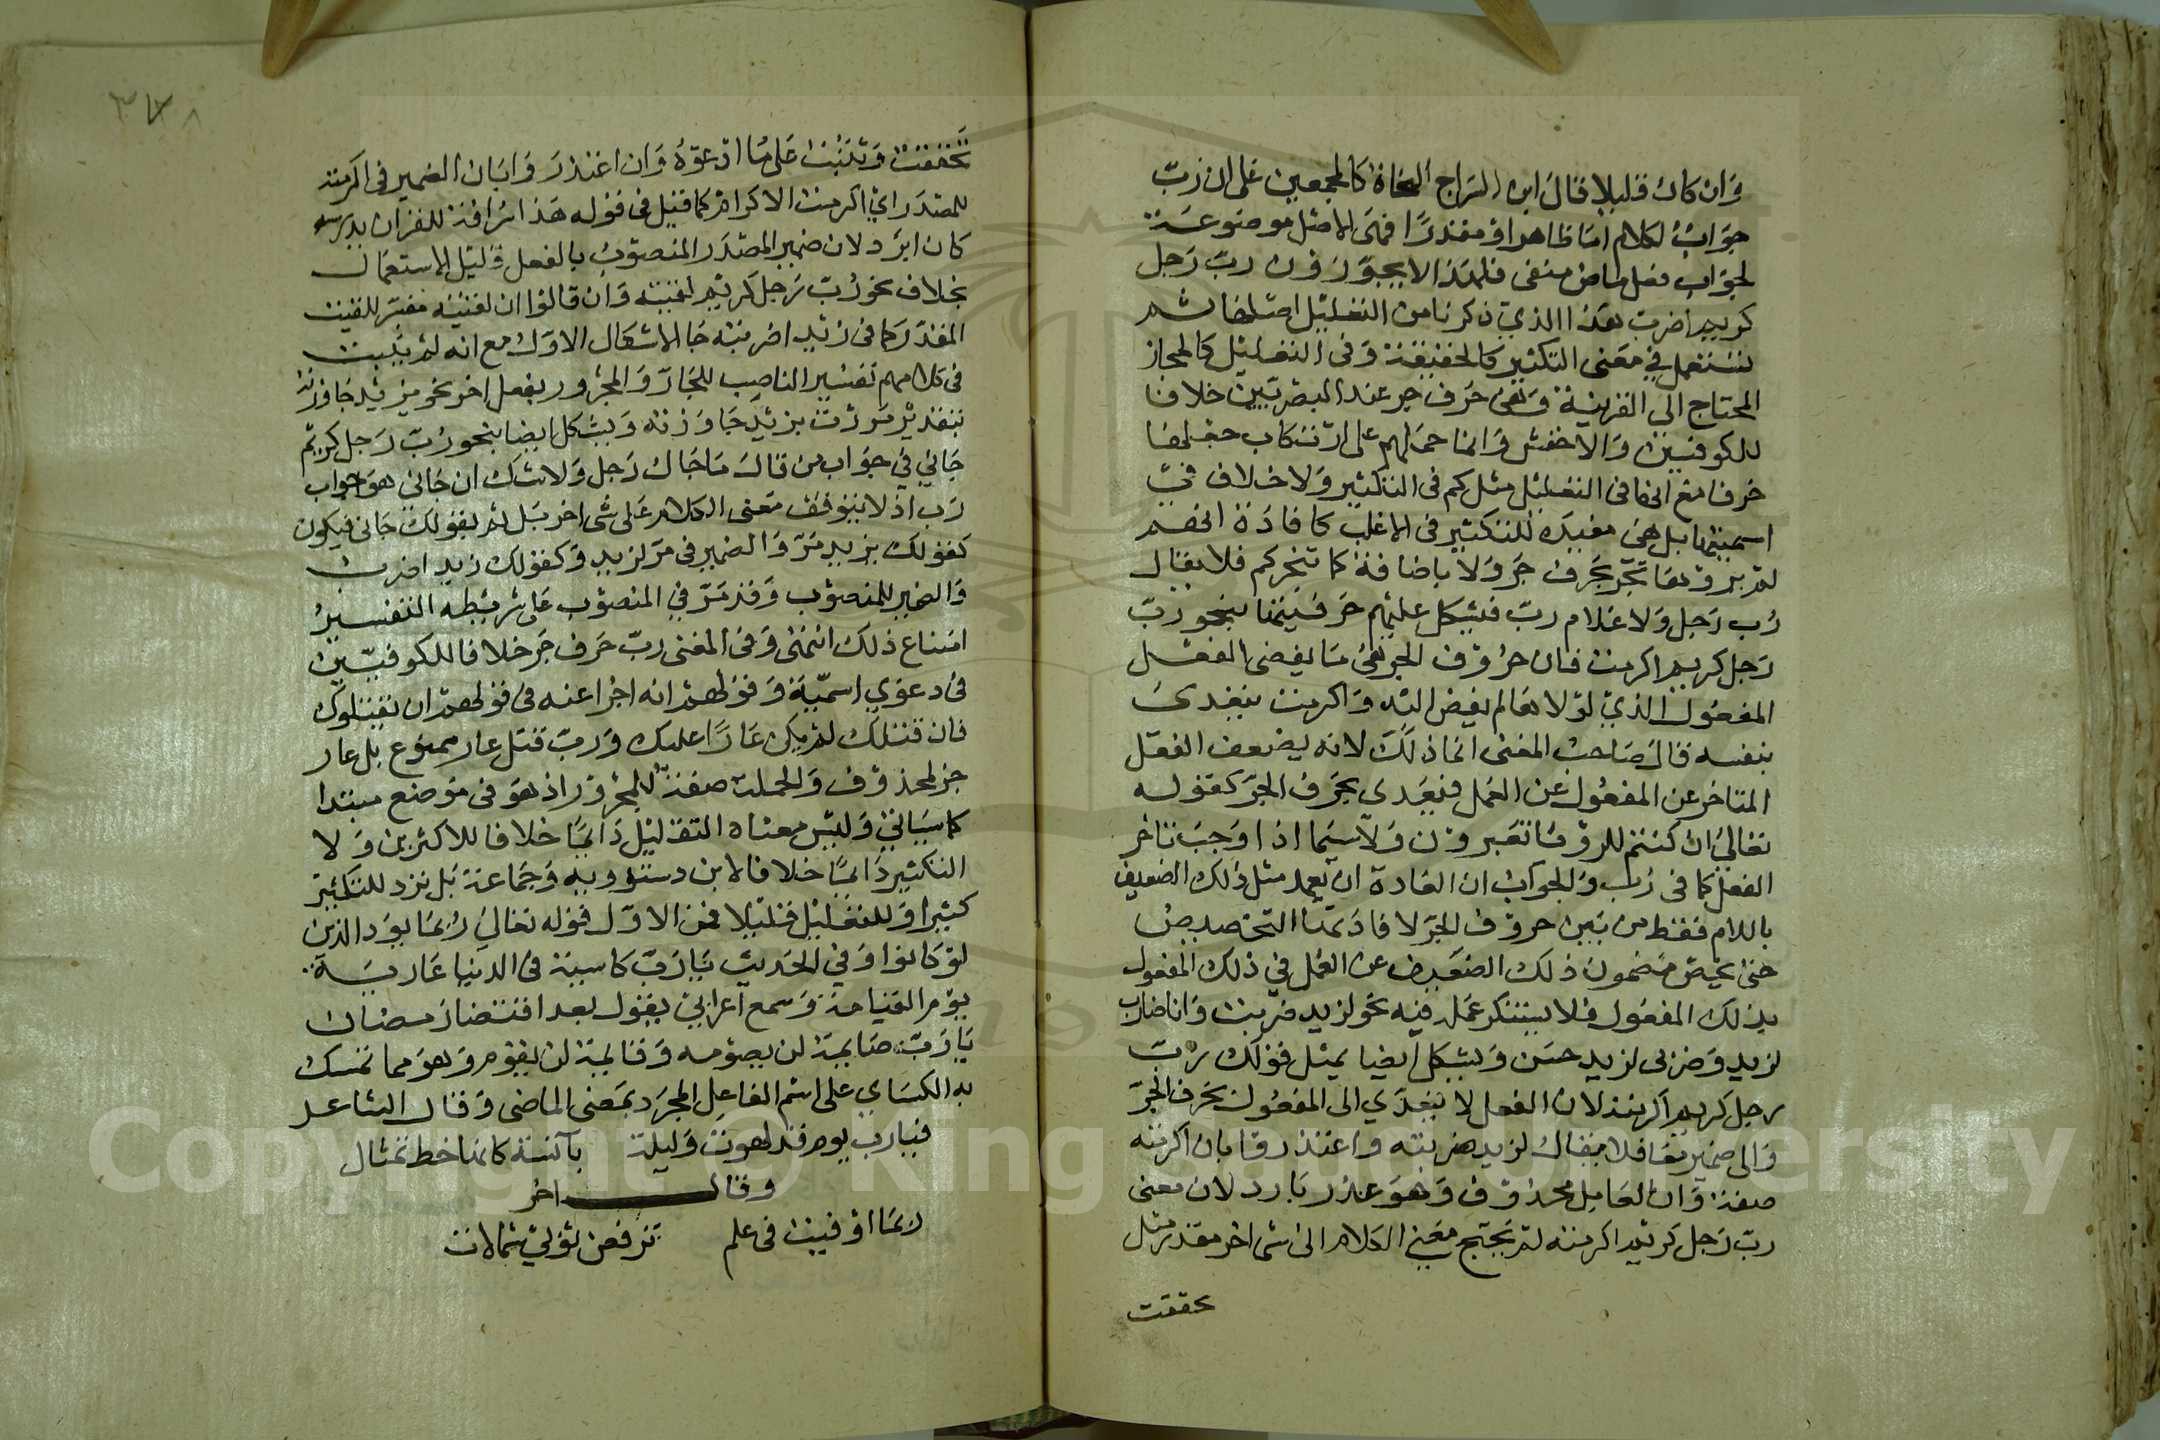 وان كان قليلا قال ابن السراج النحاة كالمجمعين على ان رب
جواب لكلام اما ظاهر او مقدر فهى فى الاصل موضوعة
لجواب فعل ماض منفى فلهذا لا يجوزون رب رجل
كريم اضرب هذا الذي ذكرنا من التقليل اصلها ثم
تستعمل في معنى التكثير كالحقيقة وفى التقليل كالمجاز
المحتاج الى القرينة وهى حرف جر عند البصريين خلافا
للكوفيين والاخفش وانما حملهم على ارتكاب جعلها
حرفا مع انها فى التقليل مثل كم فى التكثير ولا خلاف في
اسميتها بل هى مفيدة للتكثير فى الاغلب كافادة انهم
لم يروها تجر بحرف جر ولا باضافة كما تجر كم فلا يقال
رب رجل ولا غلام رب فيشكل عليهم حرفيتها بنحو رب
رجل كريم اكرمت فان حروف الجر هى ما يفضى الفعل
المفعول الذي لولاها لم يفض اليه واكرمت يتعدى
بنفسه قال صاحب المغنى انما ذلك لانه يضعف الفعل
المتاخر عن المفعول عن العمل فيعدى بحرف الجر كقوله
تعالى ان كنتم للرؤيا تعبرون ولا سيما اذا وجب تاخر
الفعل كما فى رب والجواب ان العادة ان يعمد مثل ذلك الضعيف
باللام فقط من بين حروف الجر لافادتها التخصيص
حتى يخص مضمون ذلك الضعيف عن العمل في ذلك المفعول
بذلك المفعول فلا يستنكر عمله فيه نحو لزيد ضربت وانا ضارب
لزيد وضربى لزيد حسن ويشكل ايضا بمثل قولك رب
رجل كريم اكرمته لان الفعل لا يتعدي الى المفعول بحرف الجر
والى ضميره معا فلا يقال لزيد ضربته واعتذروا بان اكرمته
صفة وان العامل محذوف وهو عذر بارد لان معنى
رب رجل كريم اكرمته لم يحتج معنى الكلام الى شى اخر مقدر مثل
تحققت
تحققت وثبتت على ما ادعوه وان اعتذر وا بان الضمير فى اكرمته
للمصدر اي اكرمت الاكرام كما قيل فى قوله هذا سراقة للقران يدرسه
كان ابرد لان ضمير المصدر المنصوب بالفعل قليل الاستعمال
بخلاف نحو رب رجل كريم لقيته وان قالوا ان لقيته مفسر للقيت
المقدر كما فى زيد اضربته جا الاشكال الاول مع انه لم يثبت
فى كلامهم تفسير الناصب للجار والمجرور بفعل اخر نحو بزيد جاوزته
بتقدير مررت بزيد جاوزته ويشكل ايضا بنحو رب رجل كريم
جاني في جواب من قال ما جاك رجل ولا شك ان جاني هو جواب
رب اذ لا يتوقف معنى الكلام على شى اخر بل ثم بقولك جانى فيكون
كقولك بزيد مر والضمير فى مر لزيد وكقولك زيد اضرب
والضمير للمنصوب وقد مر في المنصوب على شريطه التفسير
امتناع ذلك انتهى وفى المغنى رب حرف جر خلافا للكوفيين
فى دعوي اسميته وقولهم انه اخبر عنه فى قولهم ان يقتلوك
فان قتلك لم يكن عارا عليك ورب قتل عار ممنوع بل عار
خبر لمحذوف والجملة صفة للمجرور اذ هو فى موضع مبتدا
كما سياتي وليس معناه التقليل دايما خلافا للاكثرين ولا
التكثير دايما خلافا لابن دستوريه وجماعة بل ترد للتكثير
كثيرا وللتقليل قليلا فمن الاول قوله تعالى ربما يود الذين
لو كانوا وفي الحديث يا رب كاسية فى الدنيا عارية
يوم القيامة وسمع اعرابي يقول بعد انقضا رمضان
يا رب صايمه لن يصومه وقايمه لن يقومه وهو مما تمسك
به الكساي على اسم الفاعل المجرد بمعنى الماضى وقال الشاعر
فيا رب يوم قد لهوت وليلة بآنسة كانها خط تمثال
وقال اخر
ربما اوفيت فى علم ترفعن ثوبي شمالات